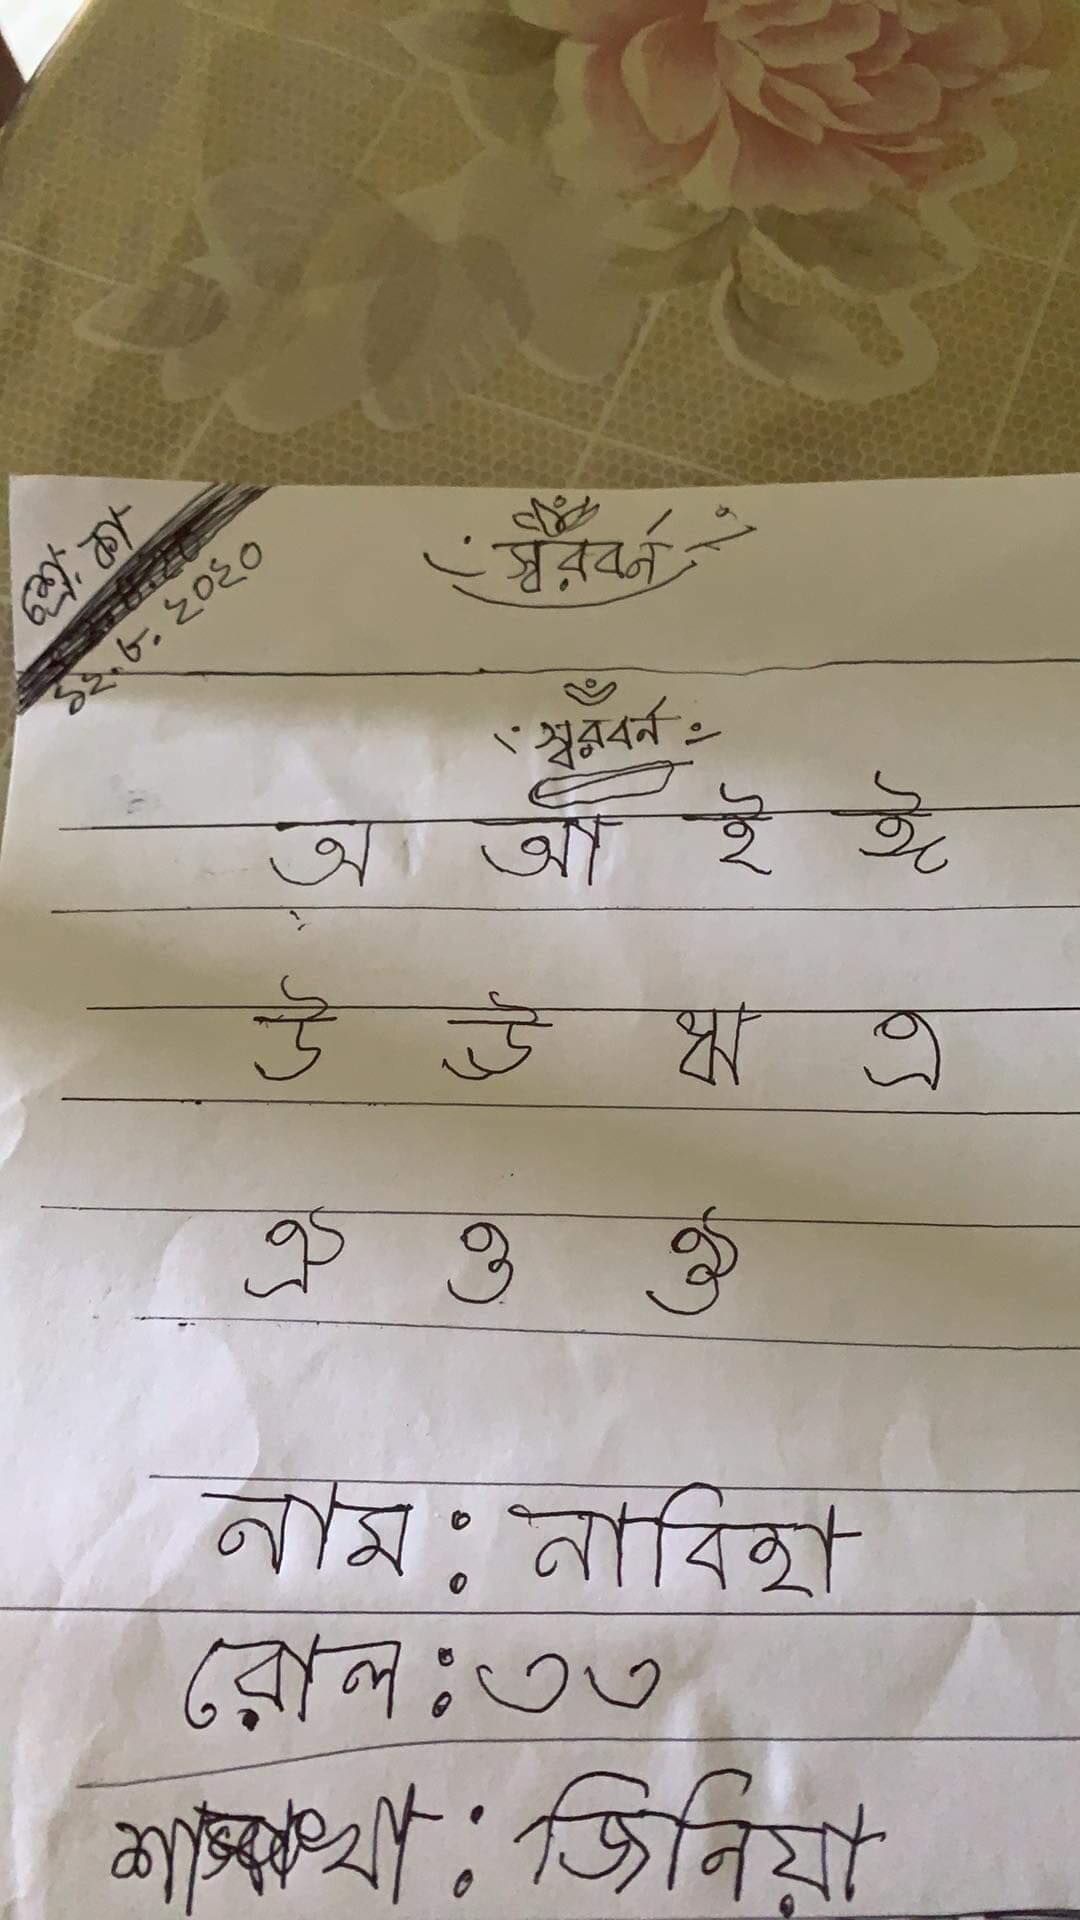 শ্রে. কা
১২.৮.২০২০
স্বরবর্ন
স্বরবর্ন
অ আ ই ঈ
উ ঊ ঋ এ
ঐ ও ঔ
নাম : নাবিহা
রোল : ৩৩
শাখা : জিনিয়া